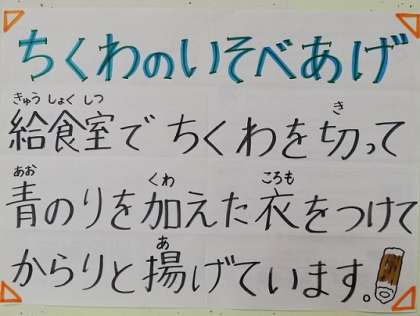 ちくわのいそべあげ
きゅう しょく しつ き
給食室で ちくわを切って
あお くわ ころも
青のりを加えた衣をつけて
あ
からりと揚げています。